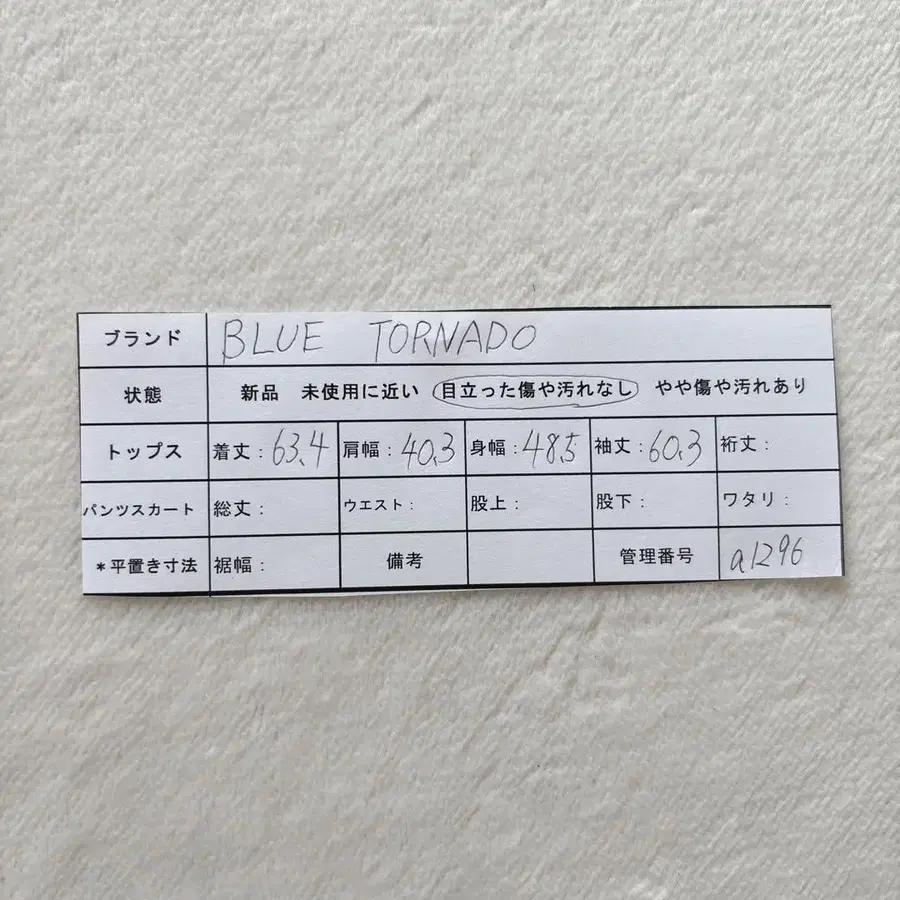 ブランド BLUE TORNADO
状態 新品 未使用に近い 目立った傷や汚れなし やや傷や汚れあり
トップス 着丈:63.4 肩幅:40.3 身幅:48.5 袖丈:60.3 裄丈:
パンツスカート 総丈: ウエスト: 股上: 股下: ワタリ:
*平置き寸法 裾幅: 備考 管理番号 a1296